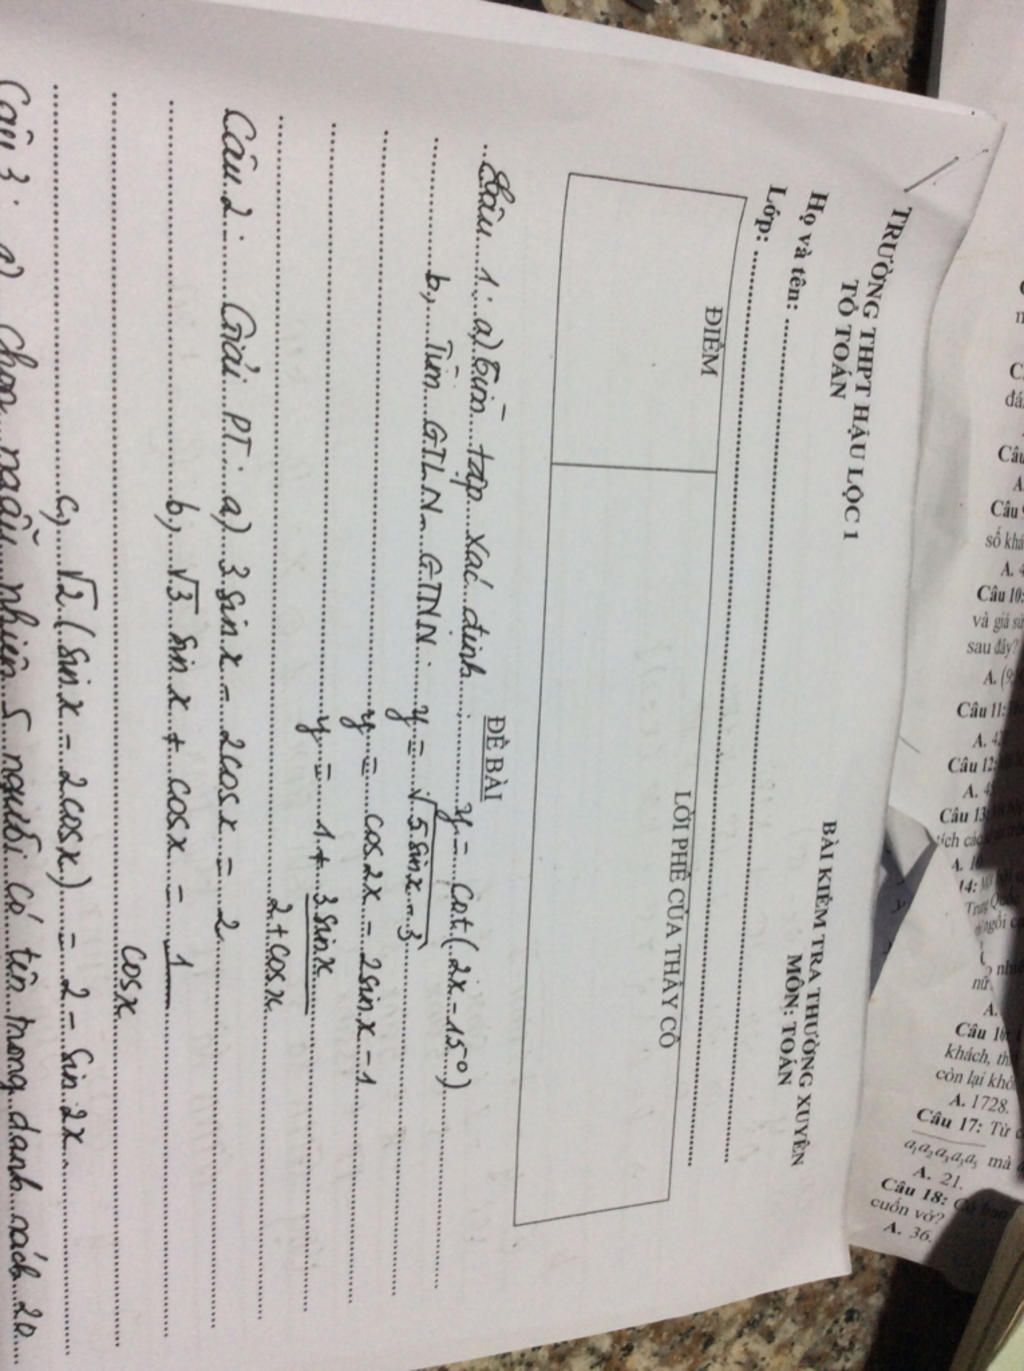 TRƯỜNG THPT HẬU LỘC 1
TỔ TOÁN
BÀI KIỂM TRA THƯỜNG XUYÊN
MÔN: TOÁN
Họ và tên:
Lớp:
ĐIỂM
LỜI PHÊ CỦA THẦY CÔ
ĐỀ BÀI
Câu 1: a) Tìm tập xác định: y = cot(2x - 15°)
b, Tìm GTLN - GTNN: y = √5sinx - 3
y = cos2x - 2sinx - 1
y = 1 + 3sinx / 2 + cosx
Câu 2: Giải PT: a) 3sinx - 2cosx = 2
b, √3 sinx + cosx = 1 / cosx
c, √2(sinx - 2cosx) = 2 - sin2x
Câu 3: a) Chọn ngẫu nhiên 5 người có tên trong danh sách 20
Câu
A.
số khá
A. 4
Câu 10:
và giả sử
sau đây?
A. (9
Câu 11:
A. 4
Câu 12:
A. 4
Câu 13
tích các
A. 10
14:
Trung Quốc
nữ
A.
Câu 16
khách, th
còn lại khô
A. 1728.
Câu 17: Từ
a₁a₂a₃a₄a₅ mà
A. 21.
Câu 18:
cuốn vở?
A. 36.